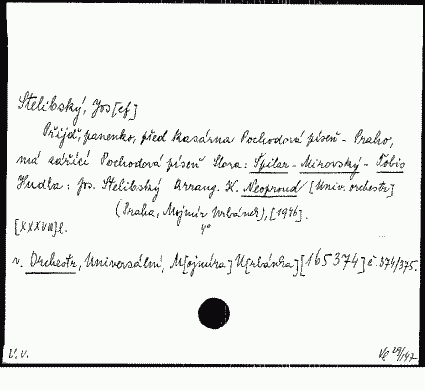 Stelibský, Jos[ef]
Přijď, panenko, před kasárna Pochodová píseň - Praho,
má zářící Pochodová píseň Slova: Špilar - Mírovský - Tobis
Hudba: Jos. Stelibský Arrang. K. Neoproud [Univ. orchestr]
(Praha, Mojmír Urbánek), [1946].
[XXXVIII] l. 4°
v. Orchestr, Universální, M[ojmíra] U[rbánka] [165374] č. 374/375.
V. v. 29/147